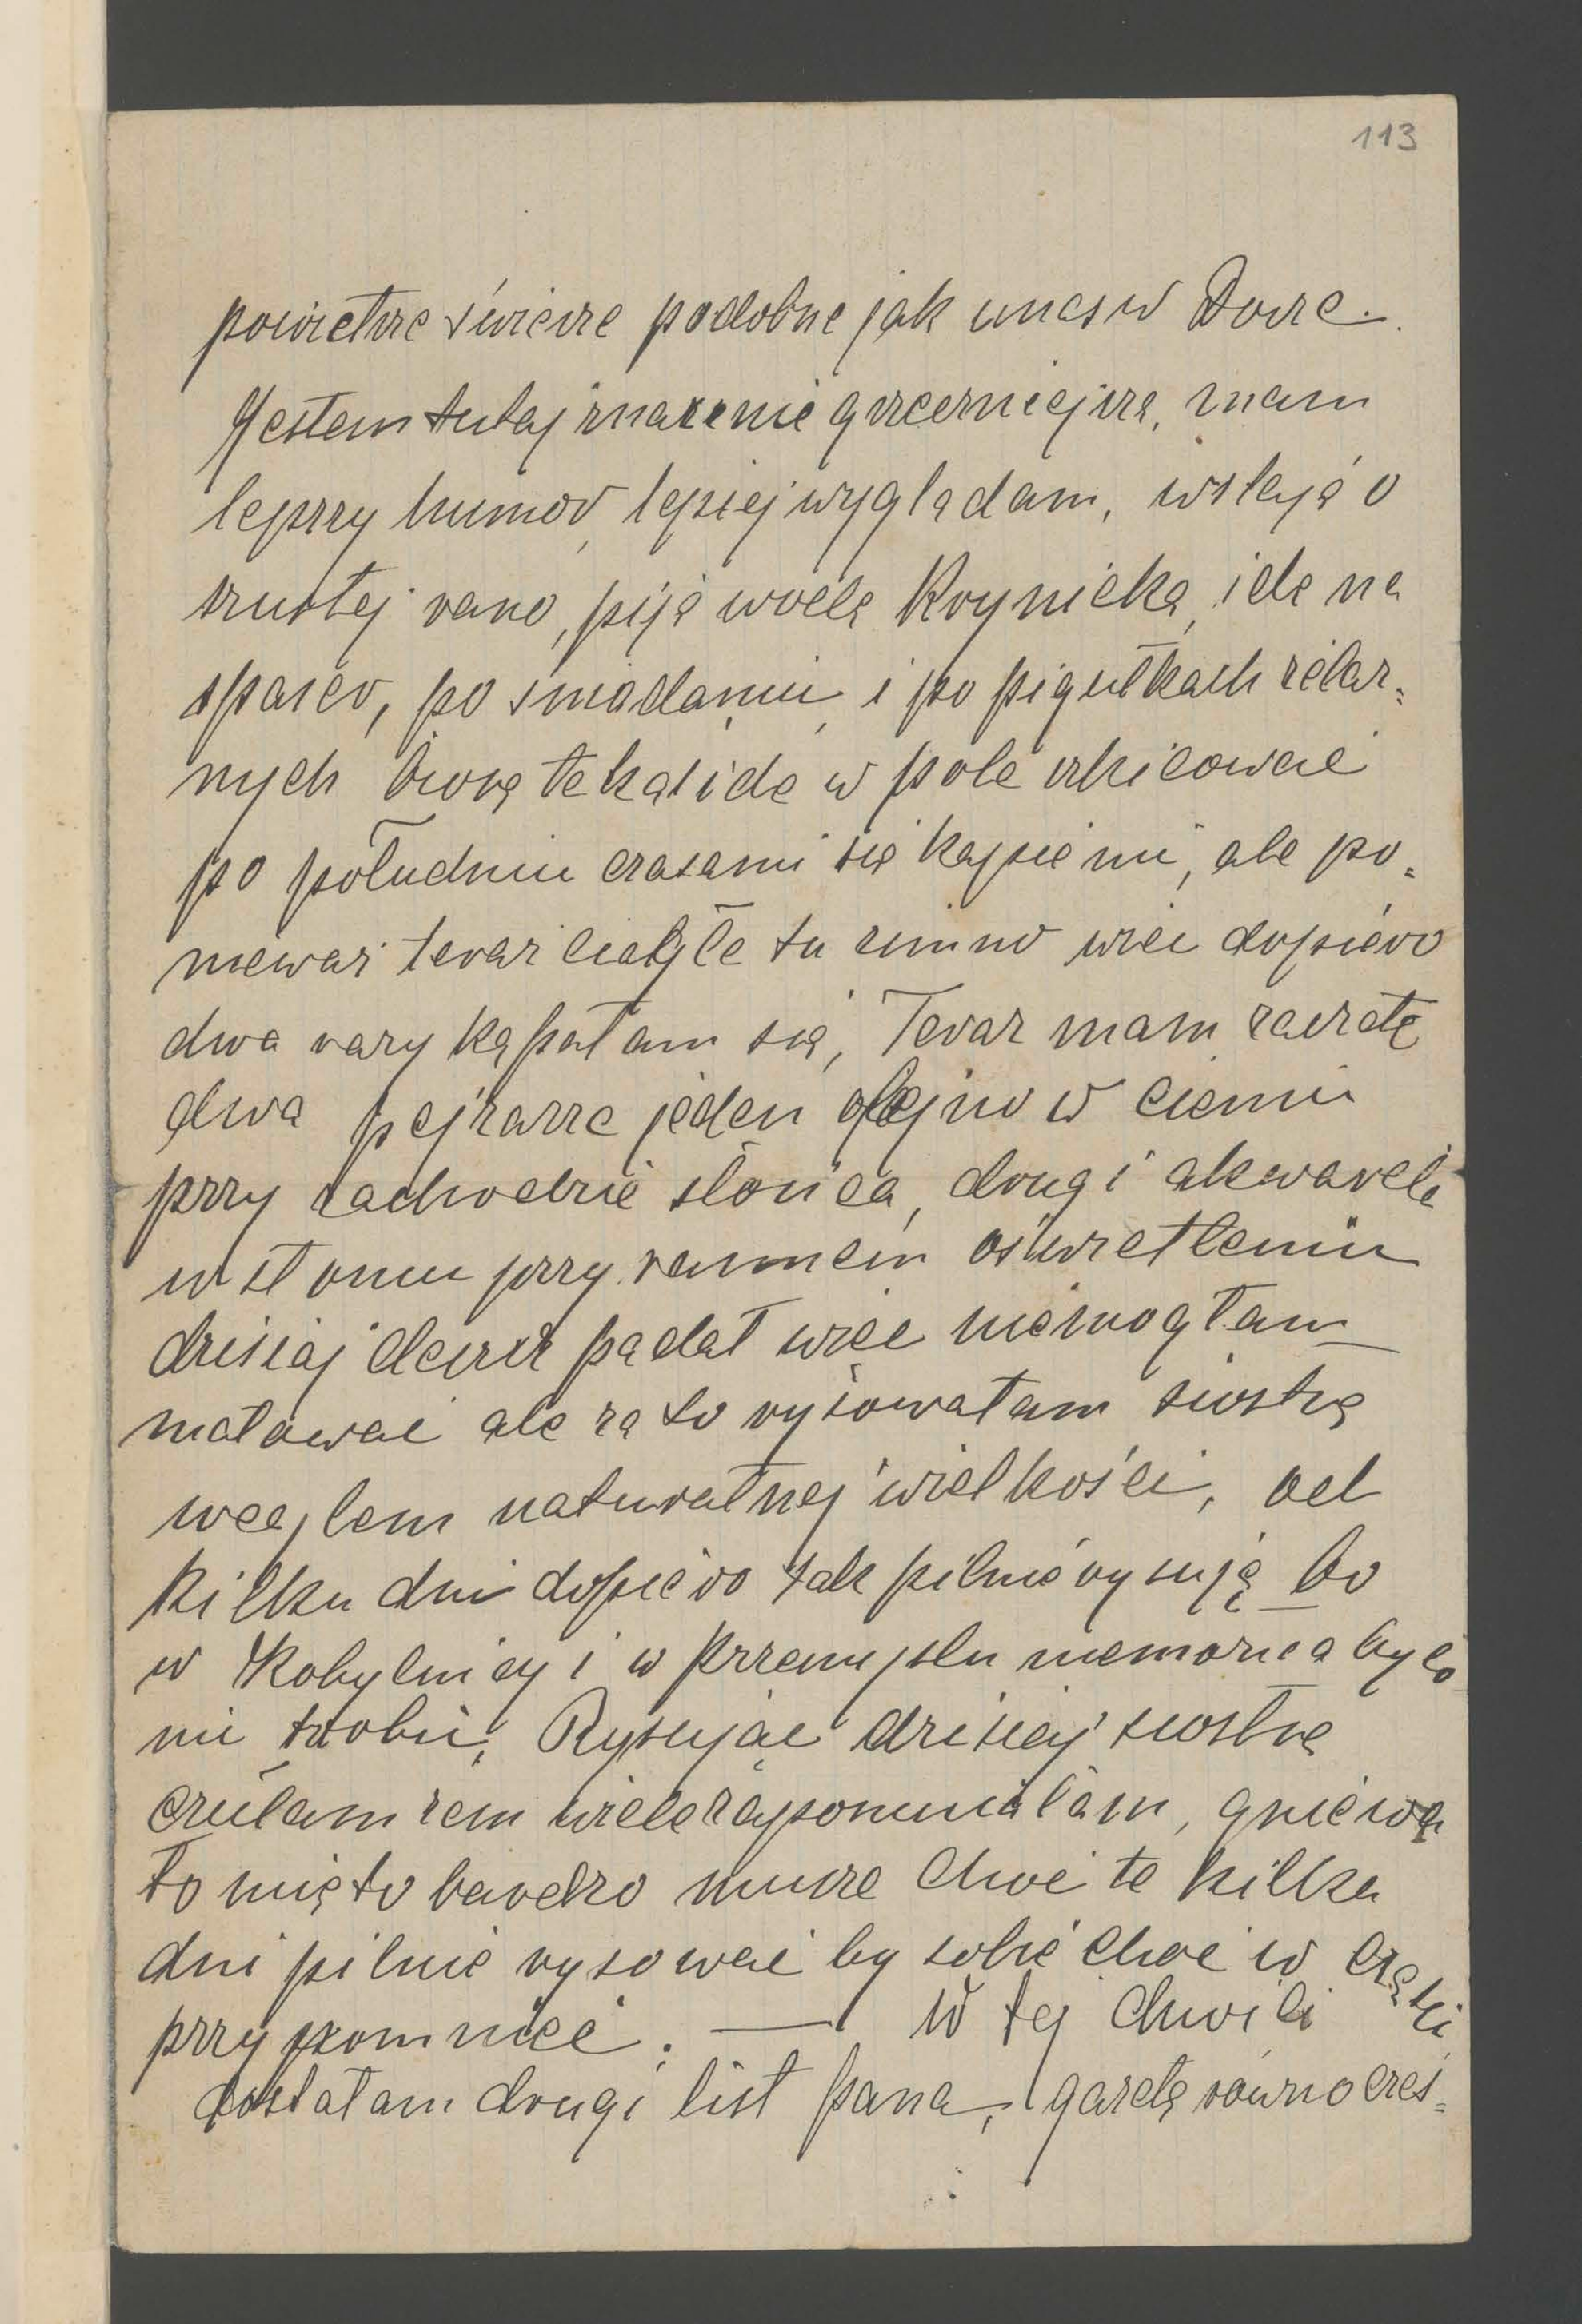 113
powietrze świeże podobne jak u nas w Dorze.
Jestem tutaj znacznie grzeczniejsza, mam
lepszy humor, lepiej wyglądam, wstaję o
szustej rano, piję wodę Krynicką, idę na
spacer, po śniadaniu i po pigułkach żelaz=
nych biorę tekę i idę w pole szkicować
po południu czasami się kąpiemi, ale po=
nieważ teraz ciągle tu zimno więc dopiero
dwa razy kąpałam się, Teraz mam zaczęte
dwa pejzarze jeden olejno w cieniu
przy zachodzie słońca, drugi akwarelę
w słońcu przy rannem oświetleniu
dzisiaj deszcz padał więc niemogłam
malować ale za to rysowałam siostrę
węglem naturalnej wielkości, od
kilku dni dopiero tak pilnie rysuję bo
w Kobylnicy i w Przemyślu niemożna było
nic robić, Rysując dzisiaj siostrę
czułam żem wiele zapomniałam, gniewa
to mię to bardzo muszę choć te kilka
dni pilnie rysować by sobie choć w części
przypomnieć. — W tej chwili
dostałam drugi list pana, gazetę równocześ=